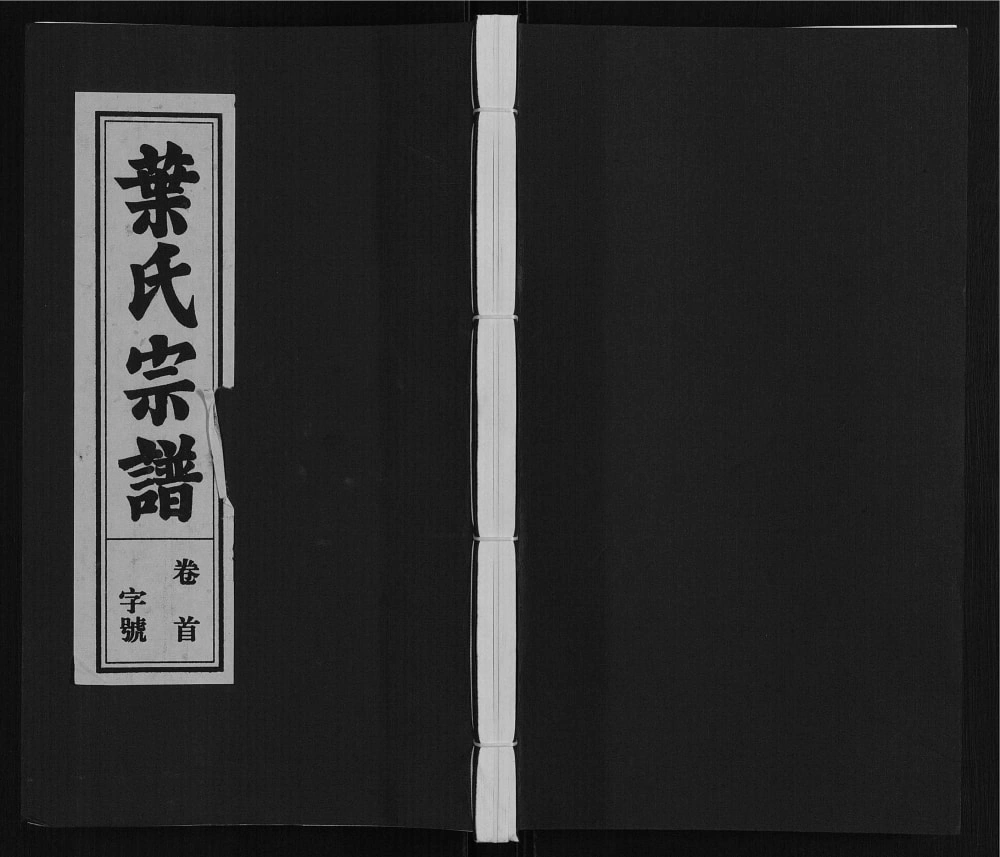 葉氏宗譜
卷首
字號